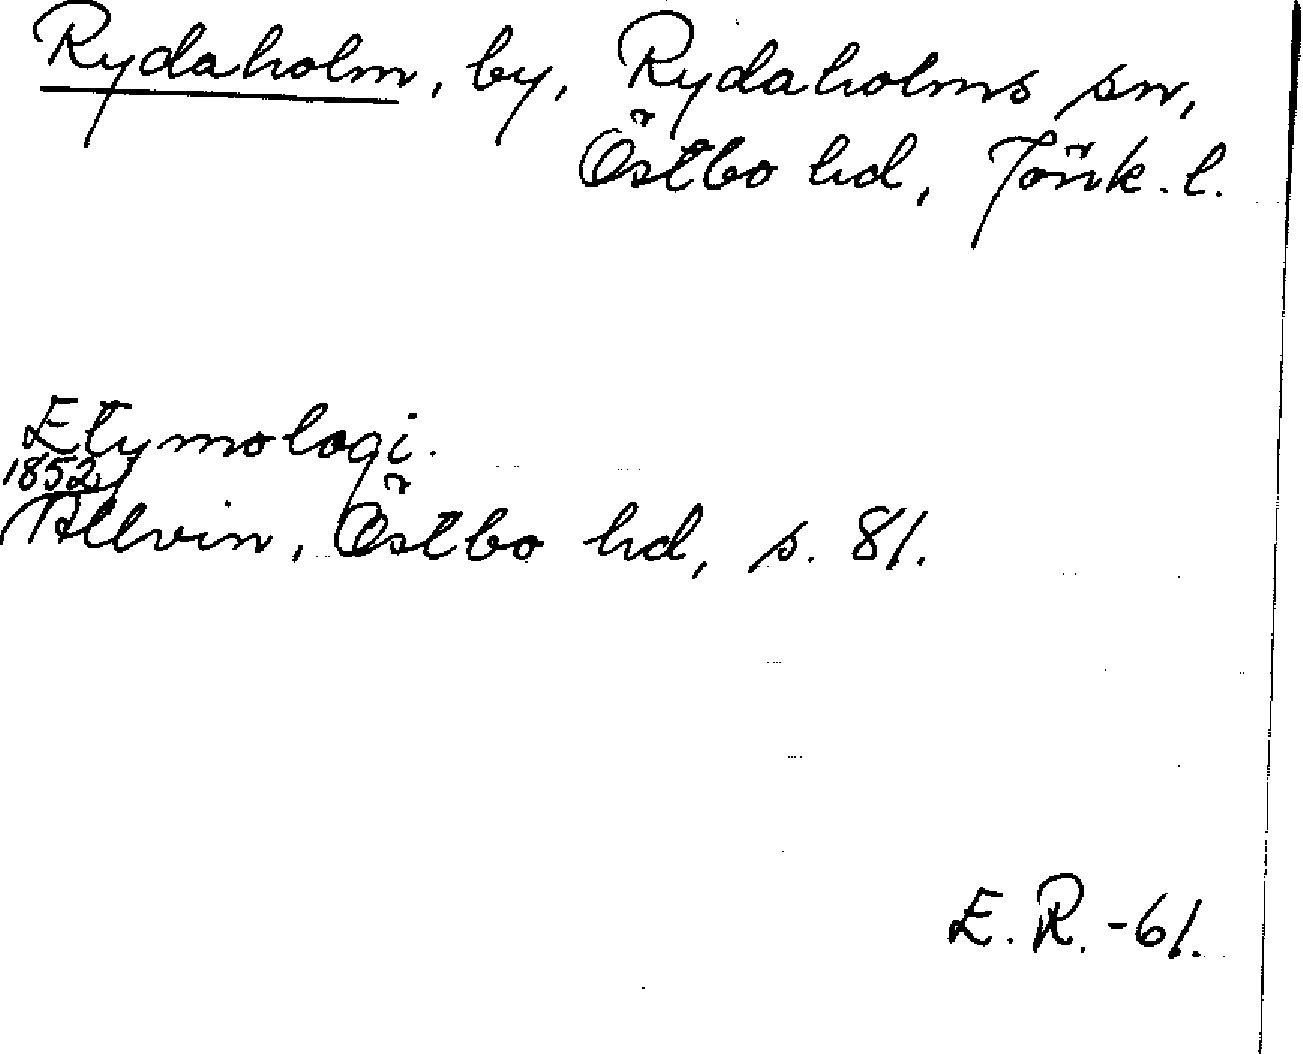 Rydaholm, by, Rydaholms sn,
Östbo hd, Jönk. l.
Etymologi.
1852
Allvin, Östbo hd, s. 81.
E. R. -61.